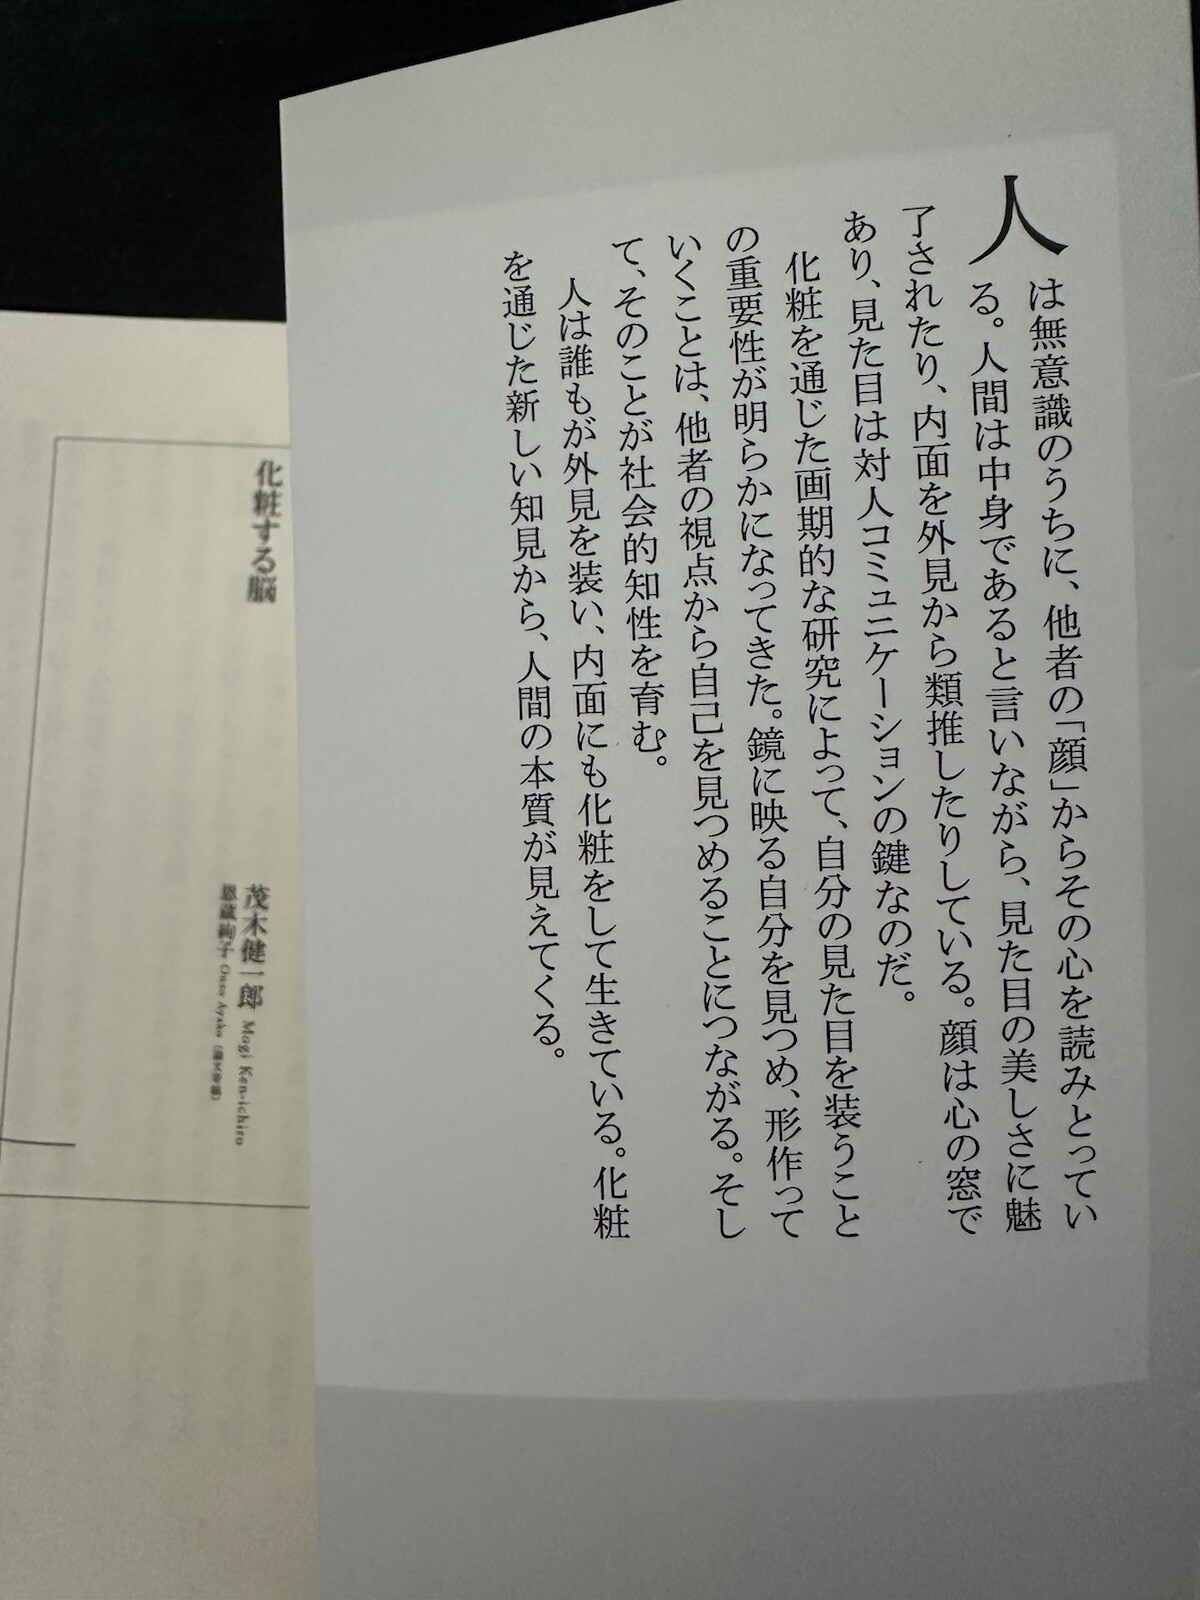 人は無意識のうちに、他者の「顔」からその心を読みとってい
る。人間は中身であると言いながら、見た目の美しさに魅
了されたり、内面を外見から類推したりしている。顔は心の窓で
あり、見た目は対人コミュニケーションの鍵なのだ。
化粧を通じた画期的な研究によって、自分の見た目を装うこと
の重要性が明らかになってきた。鏡に映る自分を見つめ、形作って
いくことは、他者の視点から自己を見つめることにつながる。そし
て、そのことが社会的知性を育む。
人は誰もが外見を装い、内面にも化粧をして生きている。化粧
を通じた新しい知見から、人間の本質が見えてくる。
化粧する脳
茂木健一郎 Mogi Ken-ichiro
恩蔵絢子 Onzo Ayako